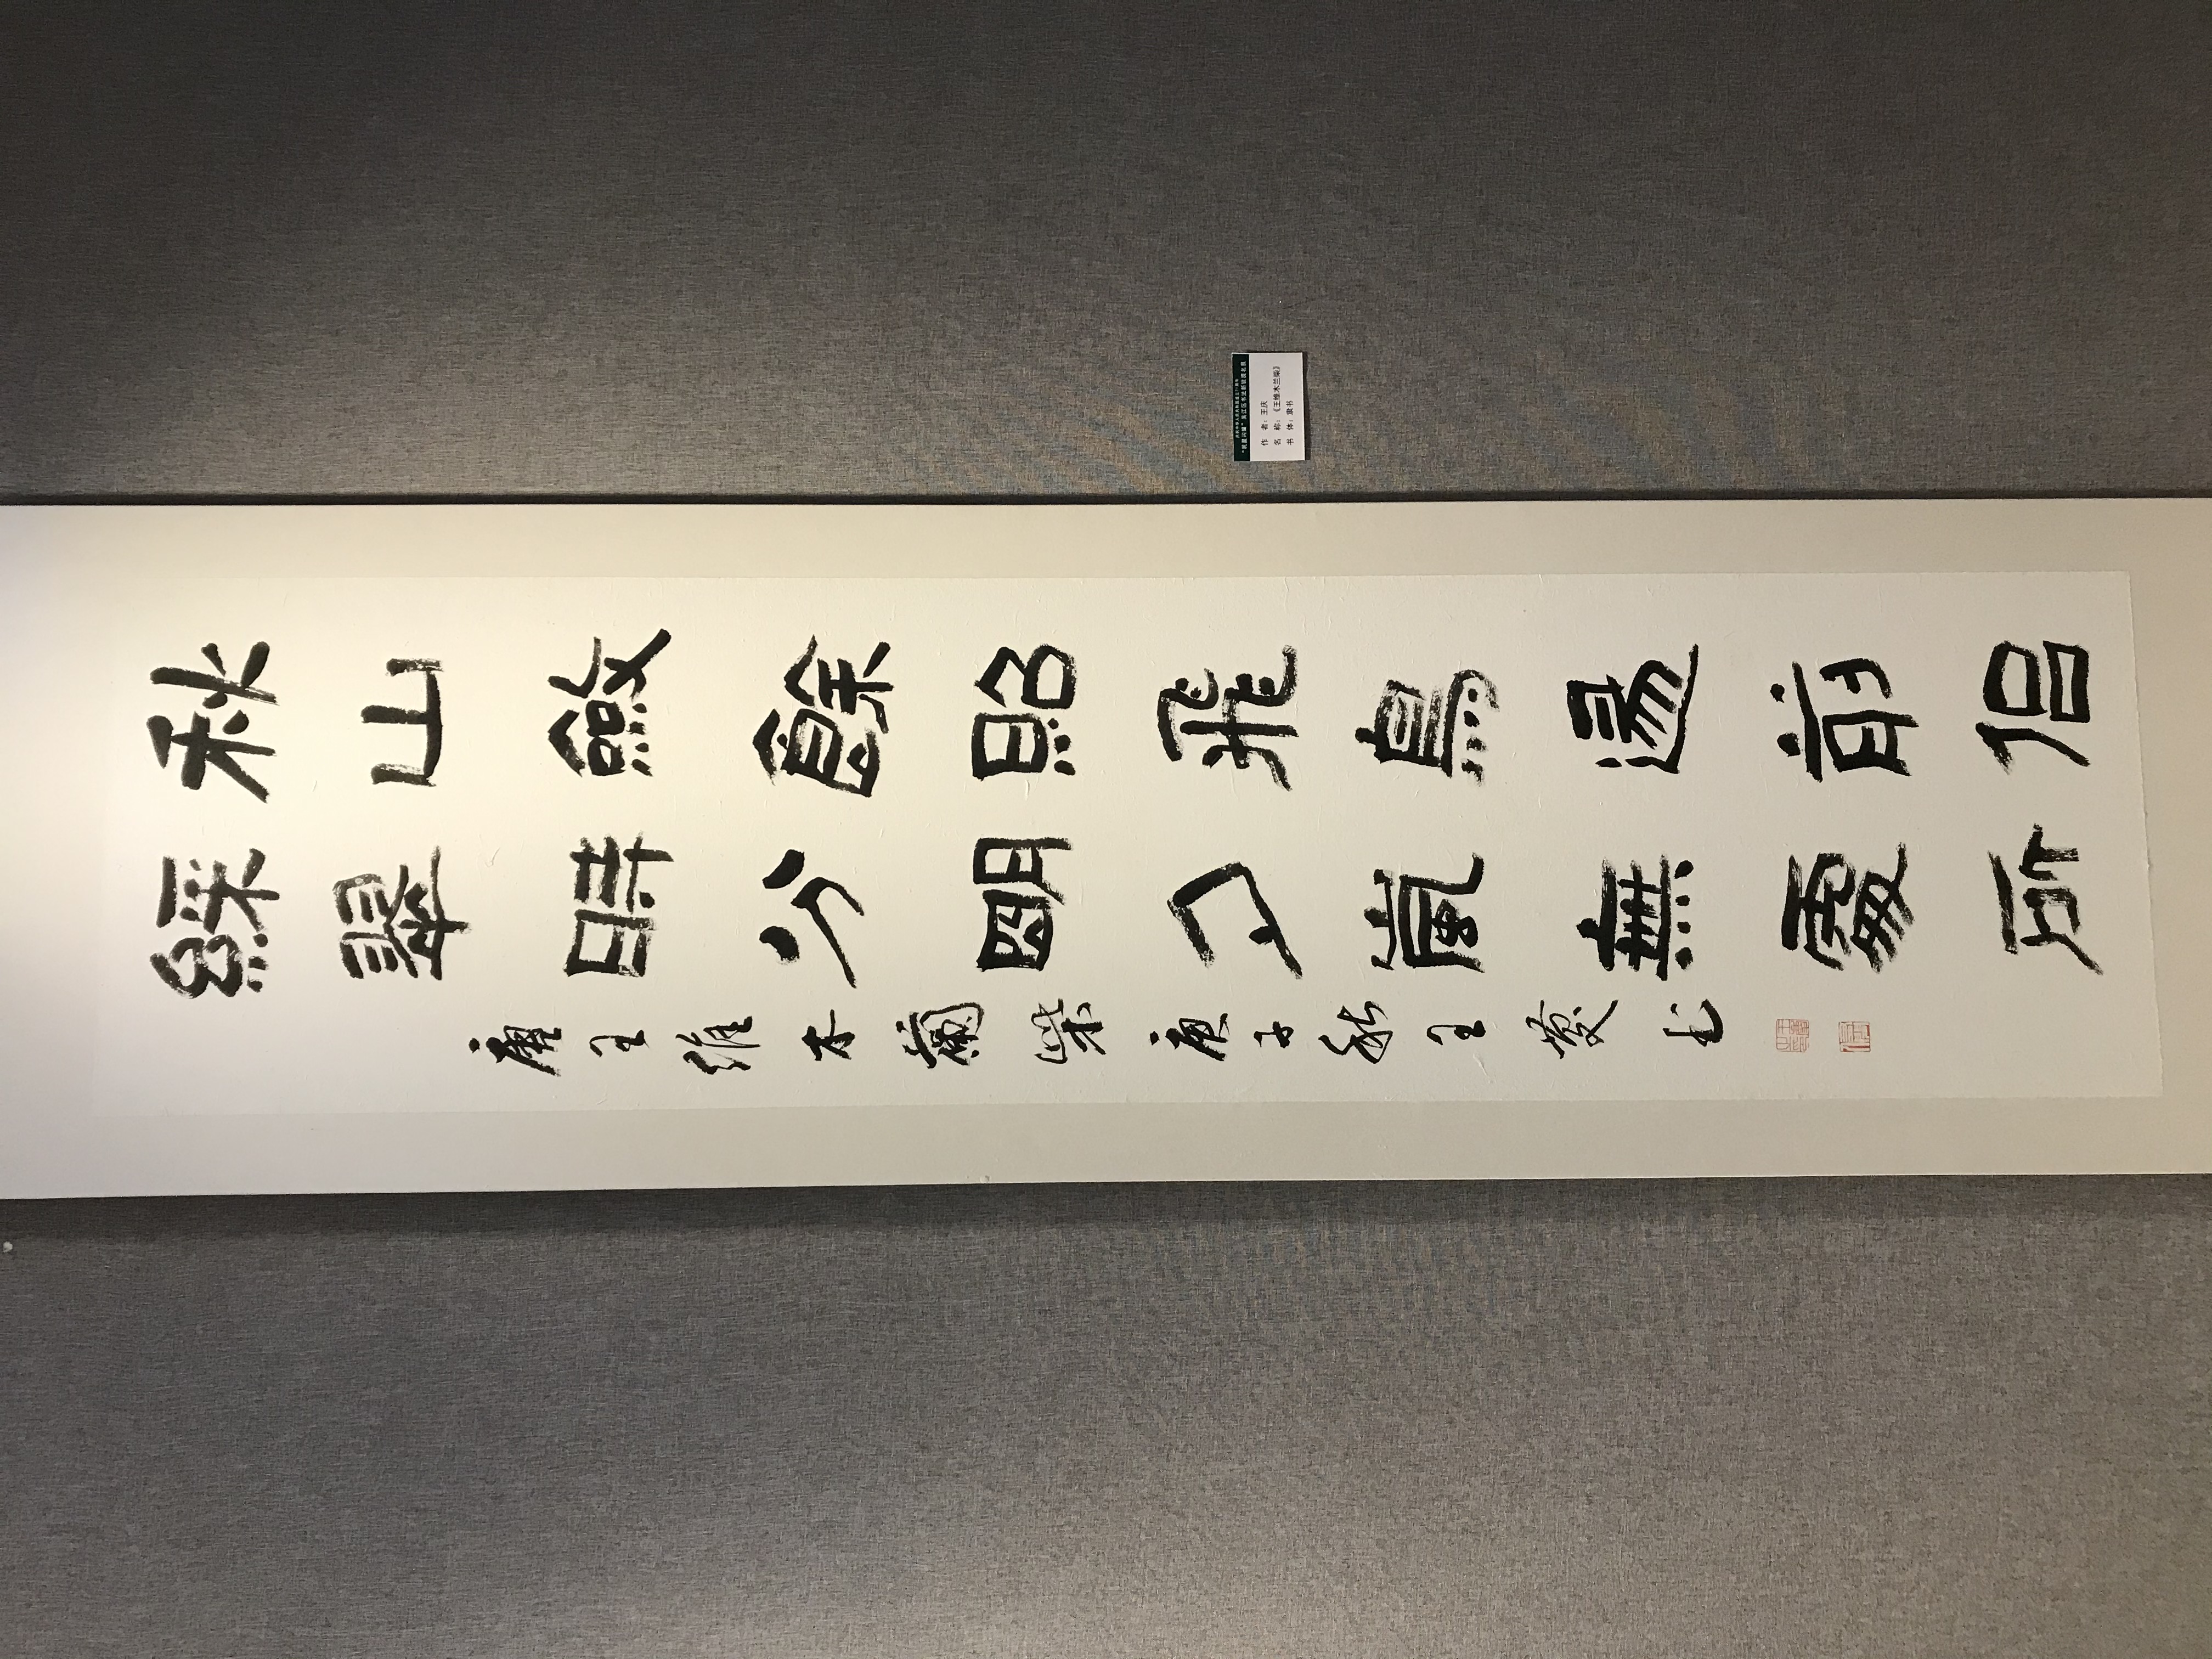 秋山斂餘照飛鳥逐前侶
綵翠時分明夕嵐無處所
唐王維木蘭柴庚子秋王慶書
作 者：王庆
名 称：《王维木兰柴》
书 体：隶书